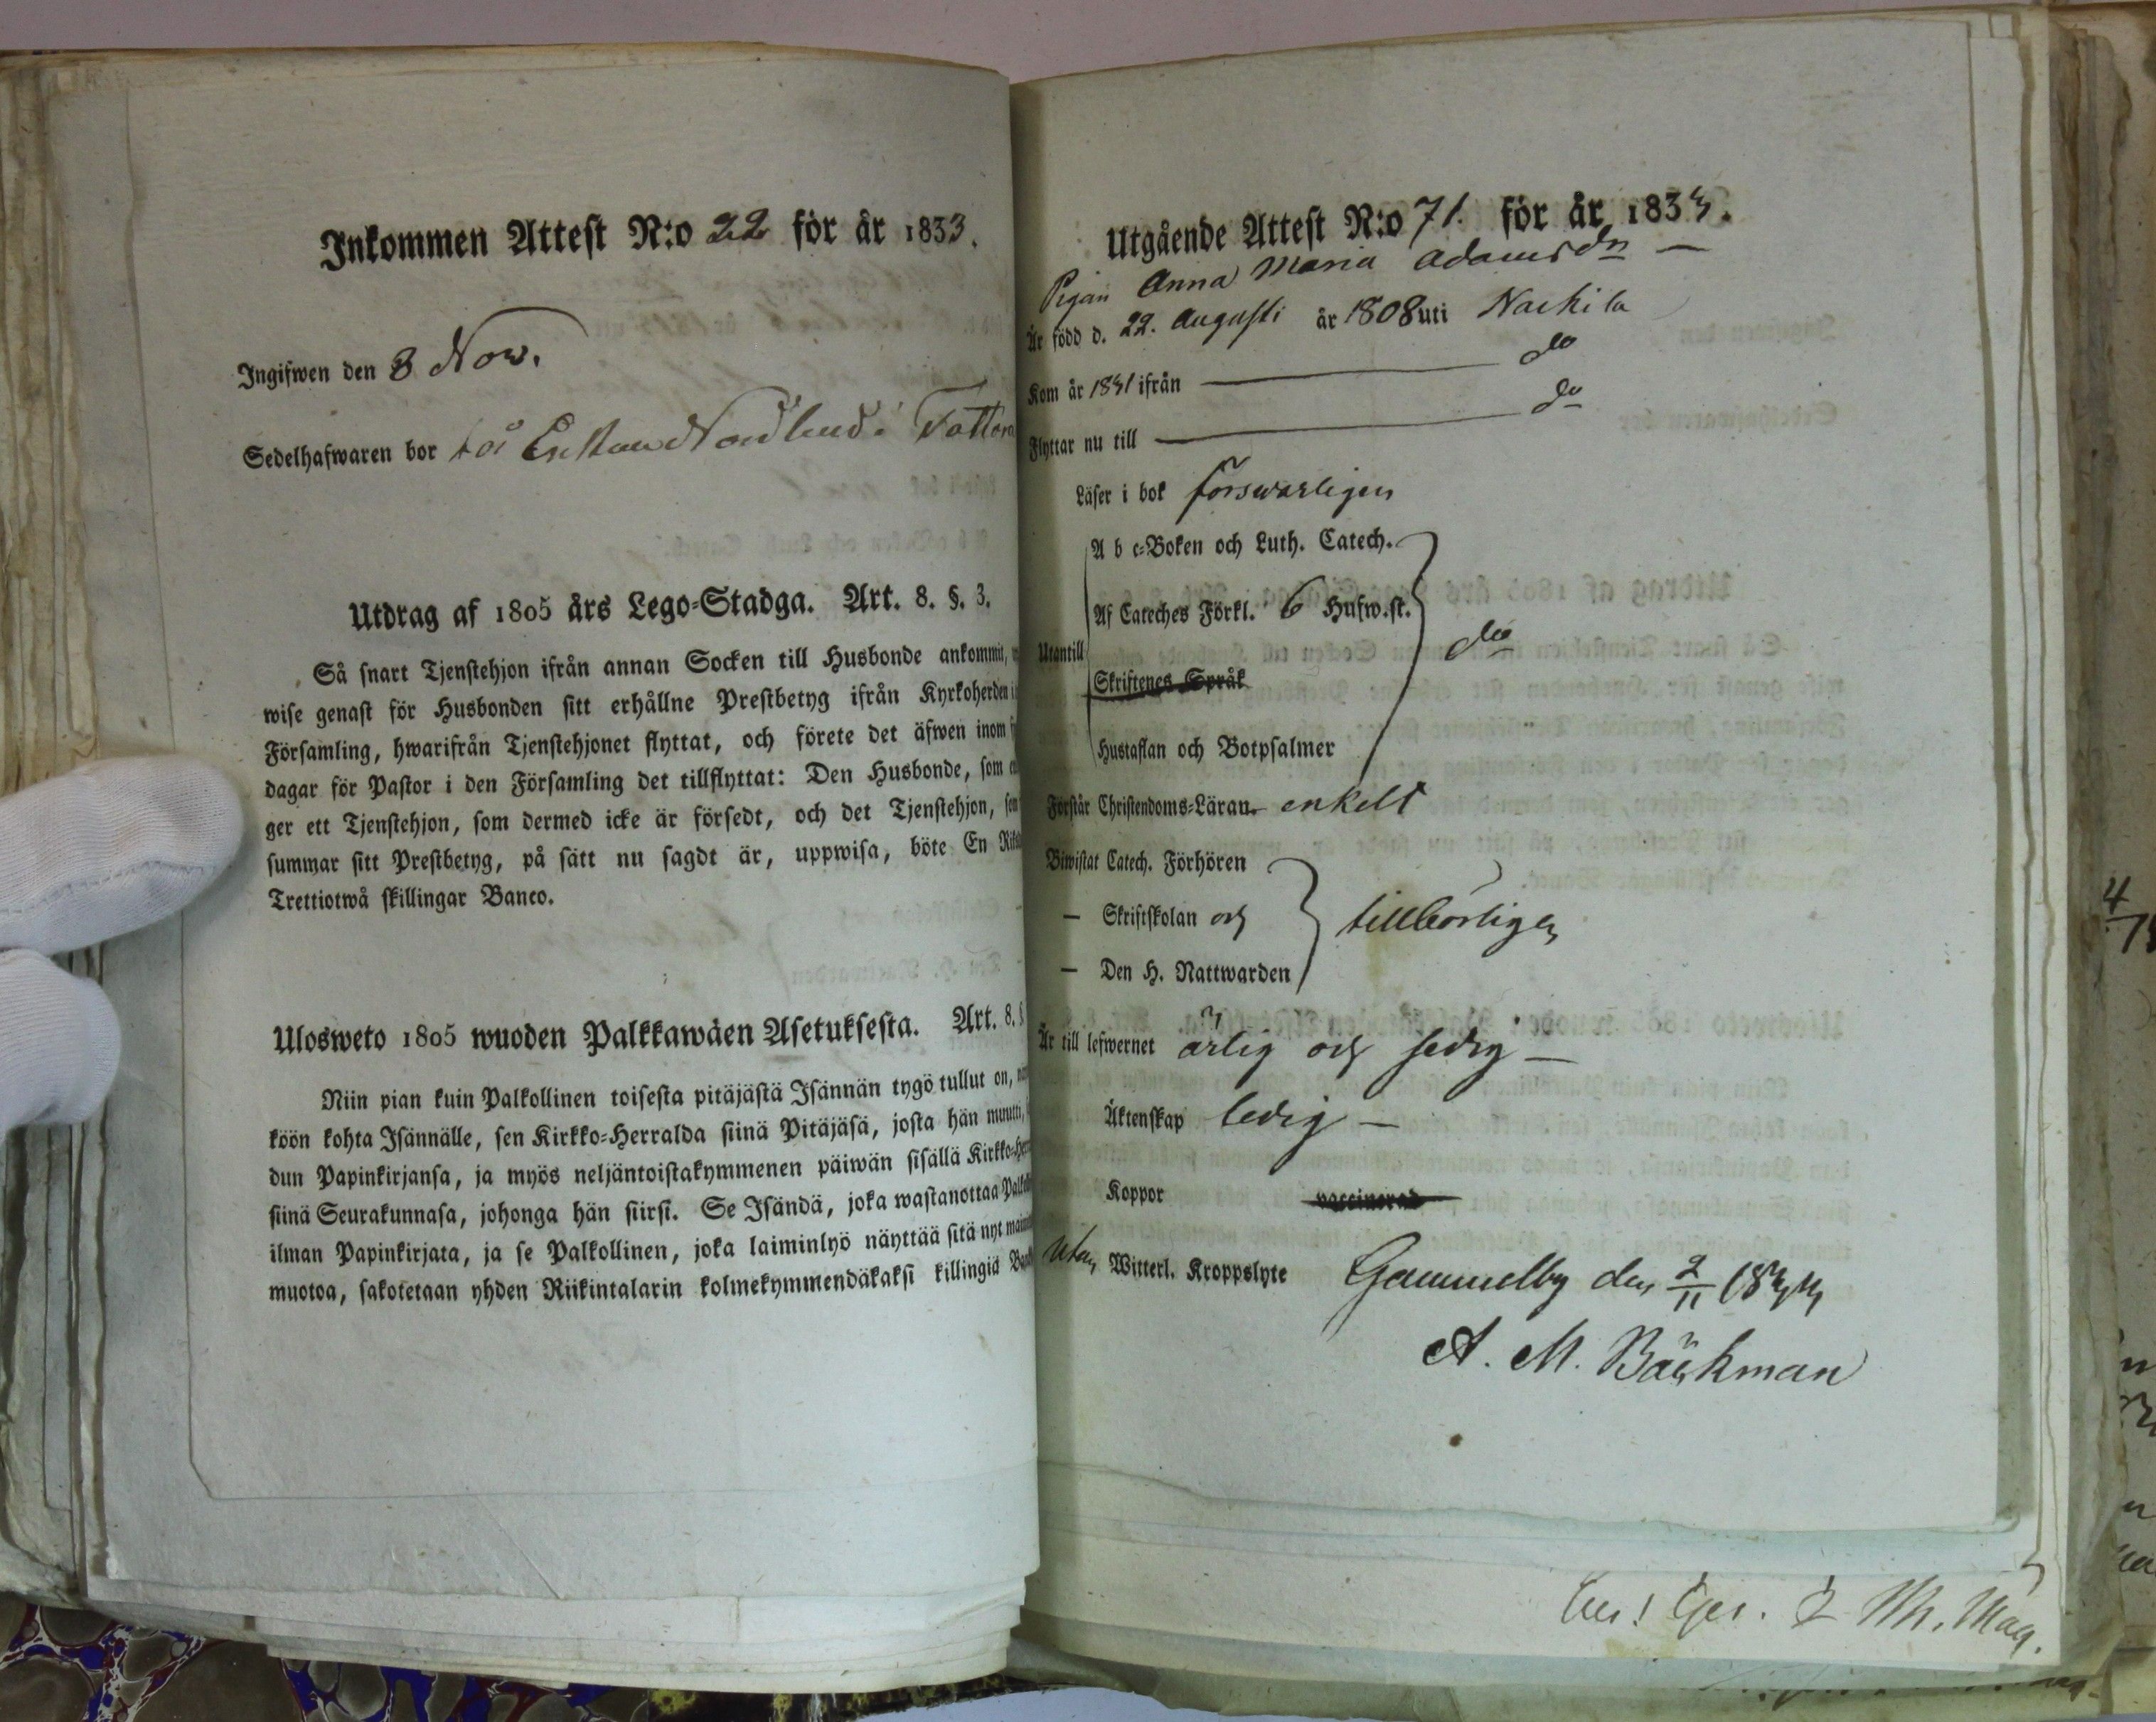 Inkommen Attest N:o 22 för år 1833.
Ingifwen den 8 Nov.
Sedelhafwaren bor hos Nordlund i
Utdrag af 1805 års Lego-Stadga. Art. 8. §. 3.
Så snart Tjenstehjon ifrån annan Socken till Husbonde ankommit,
wise genast för Husbonden sitt erhållne Prestbetyg ifrån Kyrkoherden i
Församling, hwarifrån Tjenstehjonet flyttat, och förete det äfwen inom
dagar för Pastor i den Församling det tillflyttat: Den Husbonde, som
ger ett Tjenstehjon, som dermed icke är försedt, och det Tjenstehjon,
summar sitt Prestbetyg, på sätt nu sagdt är, uppwisa, böte En
Trettiotwå skillingar Banco.
Ulosweto 1805 wuoden Palkkawäen Asetuksesta. Art. 8.
Niin pian kuin Palkollinen toisesta pitäjästä Isännän tygö tullut on,
köön kohta Isännälle, sen Kirkko-Herralda siinä Pitäjäsä, josta hän muutti,
dun Papinkirjansa, ja myös neljäntoistakymmenen päiwän sisällä
siinä Seurakunnasa, johonga hän siirsi. Se Isändä, joka wastanottaa
ilman Papinkirjata, ja se Palkollinen, joka laiminlyö näyttää sitä nyt
muotoa, sakotetaan yhden Riikintalarin kolmekymmendäkaksi killingiä
Utgående Attest N:o 71. för år 1833.
Pigan Anna Maria Adamsdr —
Är född d. 22. Augusti år 1808 uti Nackila
Kom år 1831 ifrån — do
Flyttar nu till — do
Läser i bok förswarligen
A b c-Boken och Luth. Catech.
Af Cateches Förkl. 6 Hufw.st.
Utantill do
Skriftenes Språk
Hustaflan och Botpsalmer
Förstår Christendoms-Läran enkelt
Biwistat Catech. Förhören
— Skriftskolan och tillbörligen
— Den H. Nattwarden
Är till lefwernet ärlig och sedig —
Äktenskap ledig —
Koppor vaccinerad
utan Witterl. Kroppslyte Gammelby den 2/11 1833
A. M. Bäckman